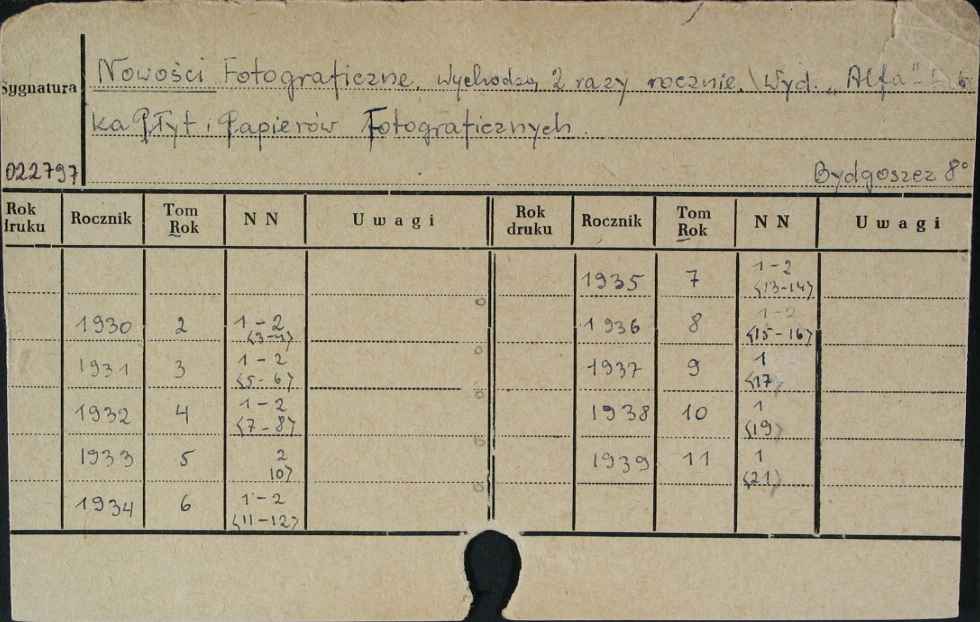 Sygnatura
Nowości Fotograficzne. Wychodzą 2 razy rocznie. Wyd. „Alfa"
ka Płyt i Papierów Fotograficznych.
022797
Bydgoszcz 8°
Rok druku Rocznik Tom Rok N N Uwagi Rok druku Rocznik Tom Rok N N Uwagi
1935 7 1-2 <13-14>
1930 2 1-2 <3-4> 1936 8 1-2 <15-16>
1931 3 1-2 <5-6> 1937 9 1 <17>
1932 4 1-2 <7-8> 1938 10 1 <19>
1933 5 2 10> 1939 11 1 <21>
1934 6 1-2 <11-12>